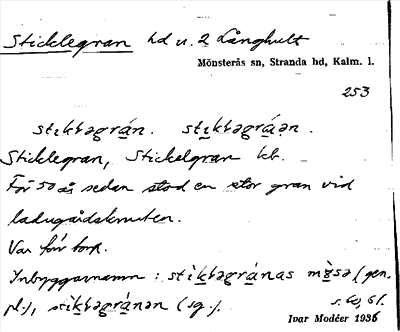 Sticklegran hd u. 2 Långhult
Mönsterås sn, Stranda hd, Kalm. l.
253
stɩkləgrán. stɩkləgráən.
Sticklegran, Stickelgran kb.
För 50 år sedan stod en stor gran vid
ladugårdsknuten.
Var förr torp.
Inbyggarnamn: stɩkləgránas mɷ̀sə (gen.
pl.), stɩkləgránən (sg.).
s. 60, 61.
Ivar Modéer 1936